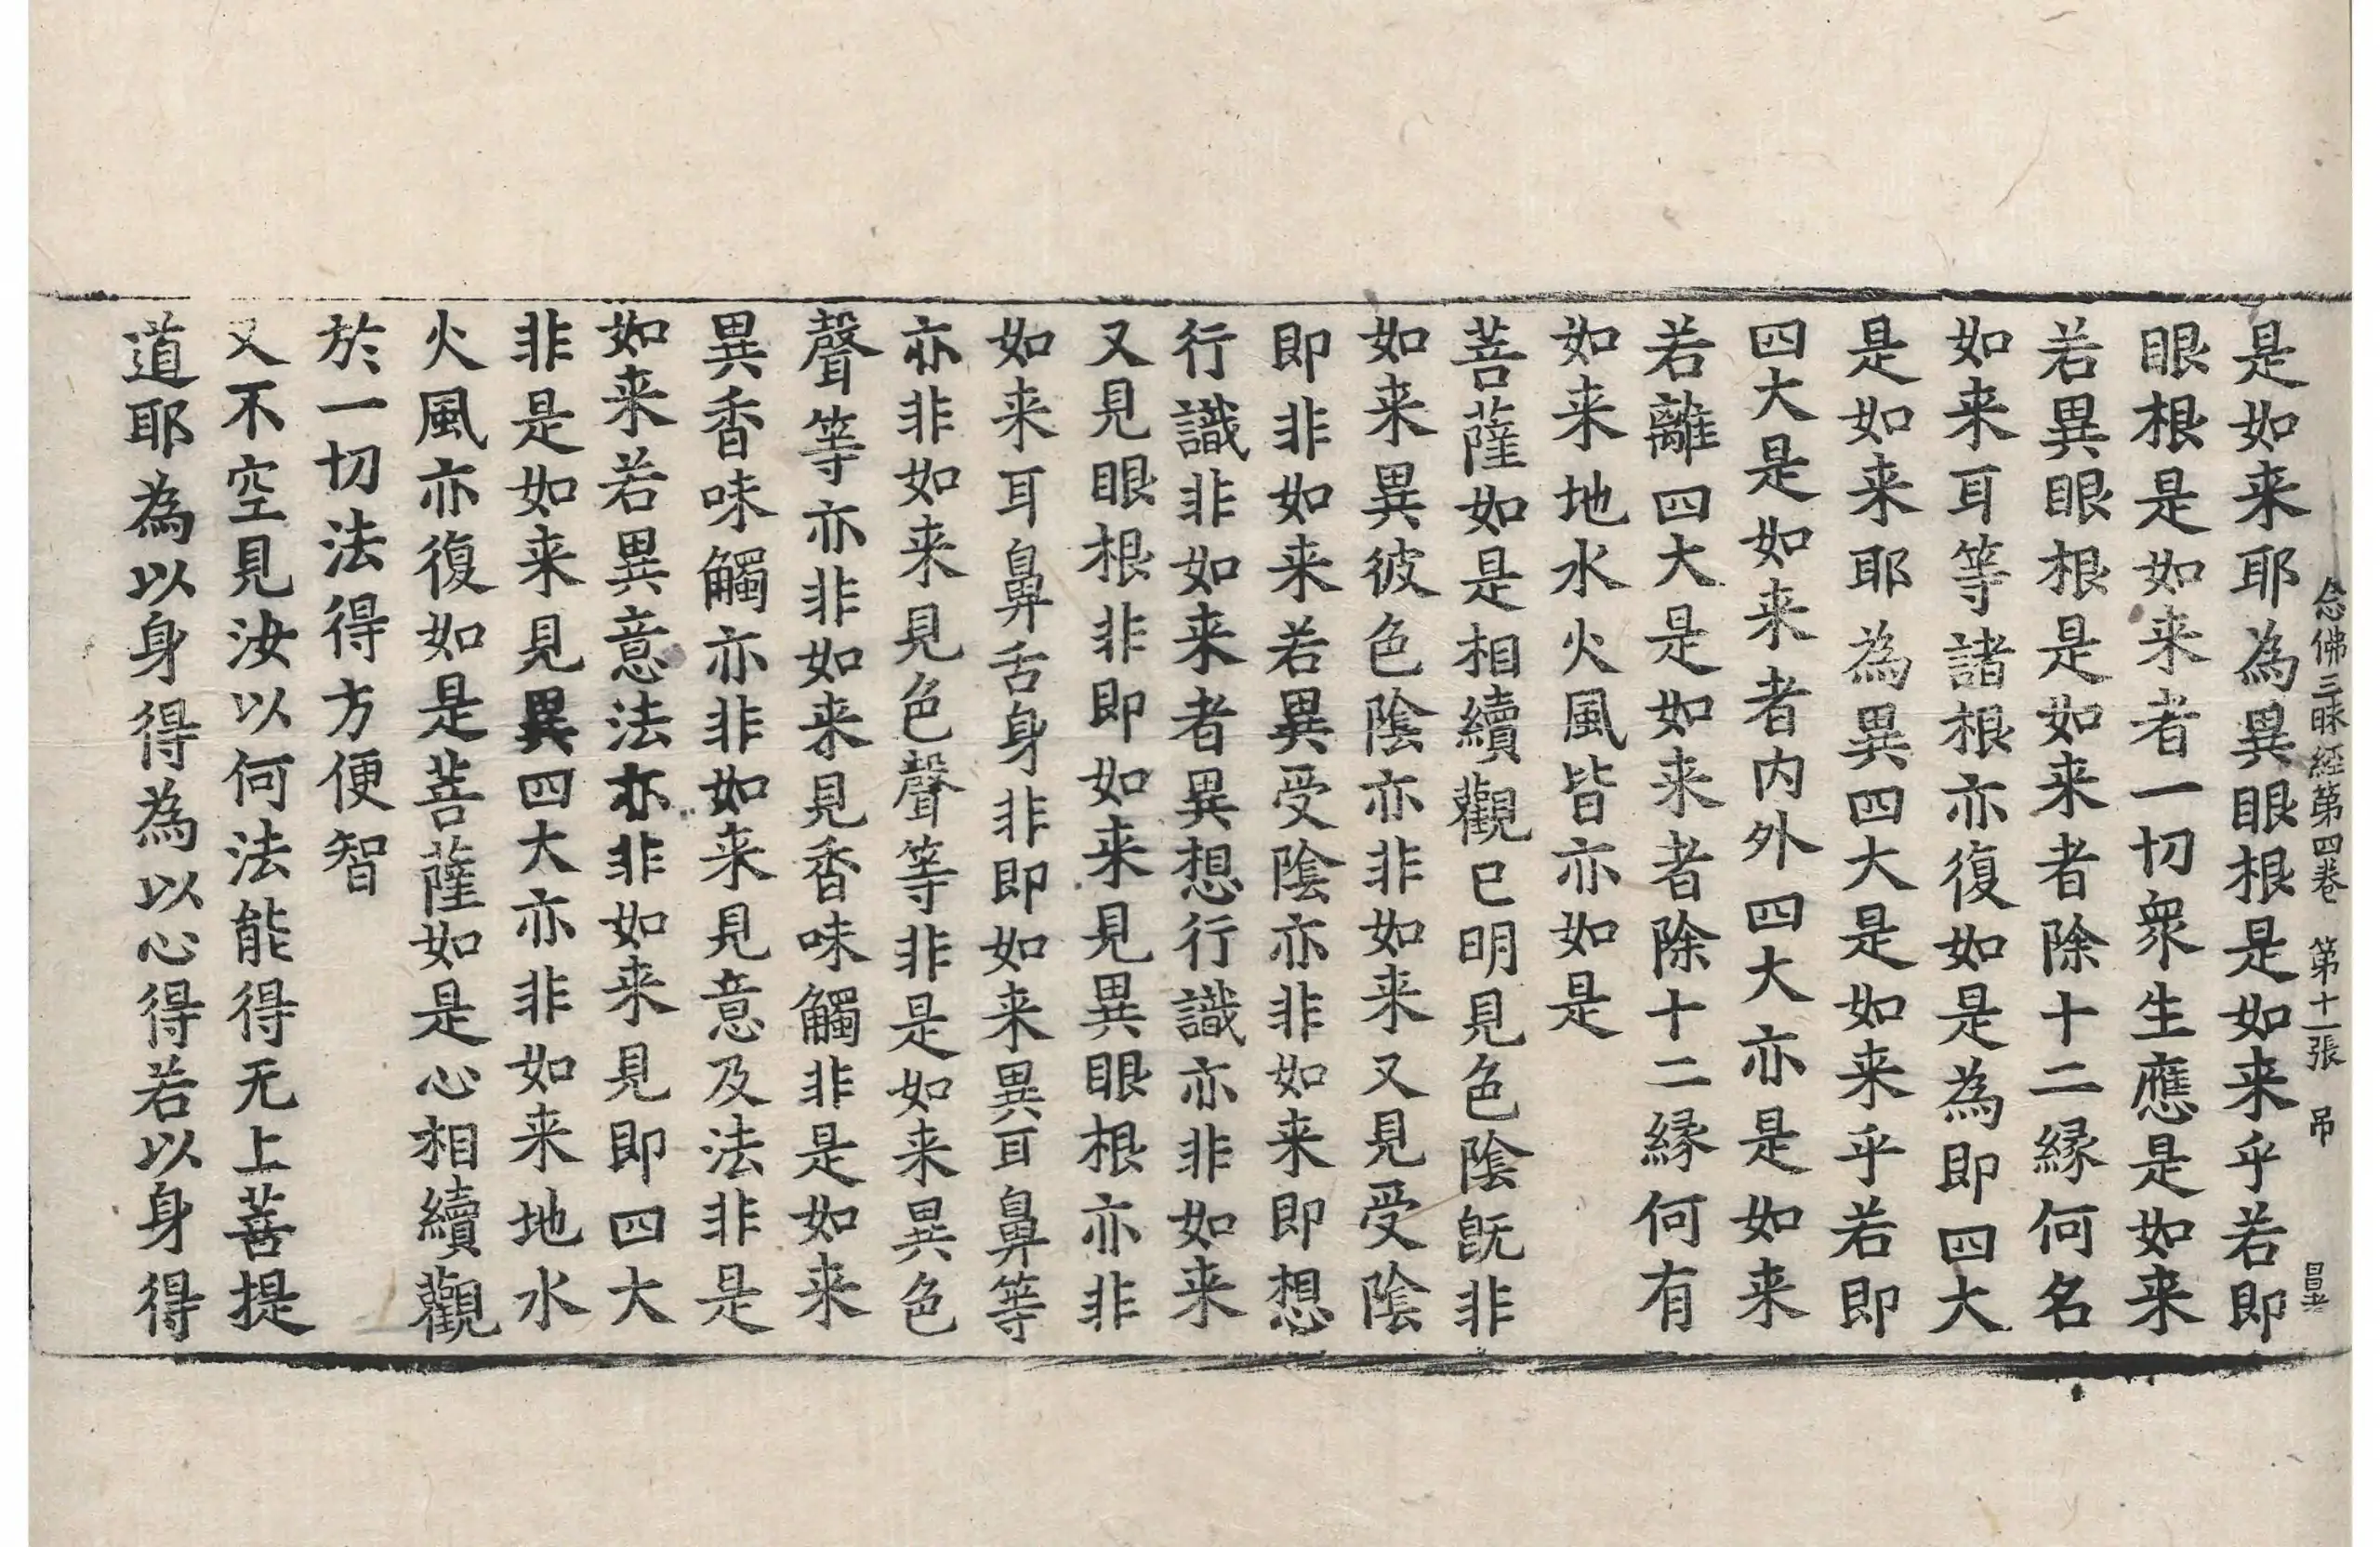 念佛三昧経第四巻 第十一張 吊
是如来耶為異眼根是如来乎若即
眼根是如来者一切衆生應是如来
若異眼根是如来者除十二縁何名
如来耳等諸根亦復如是為即四大
是如来耶為異四大是如来乎若即
四大是如来者内外四大亦是如来
若離四大是如来者除十二縁何有
如来地水火風皆亦如是
菩薩如是相續觀已明見色陰既非
如来異彼色陰亦非如来又見受陰
即非如来若異受陰亦非如来即想
行識非如来者異想行識亦非如来
又見眼根非即如来見異眼根亦非
如来耳鼻舌身非即如来異耳鼻等
亦非如来見色聲等非是如来異色
聲等亦非如来見香味觸非是如来
異香味觸亦非如来見意及法非是
如来若異意法亦非如来見即四大
非是如来見異四大亦非如来地水
火風亦復如是菩薩如是心相續觀
於一切法得方便智
又不空見汝以何法能得无上菩提
道耶為以身得為以心得若以身得